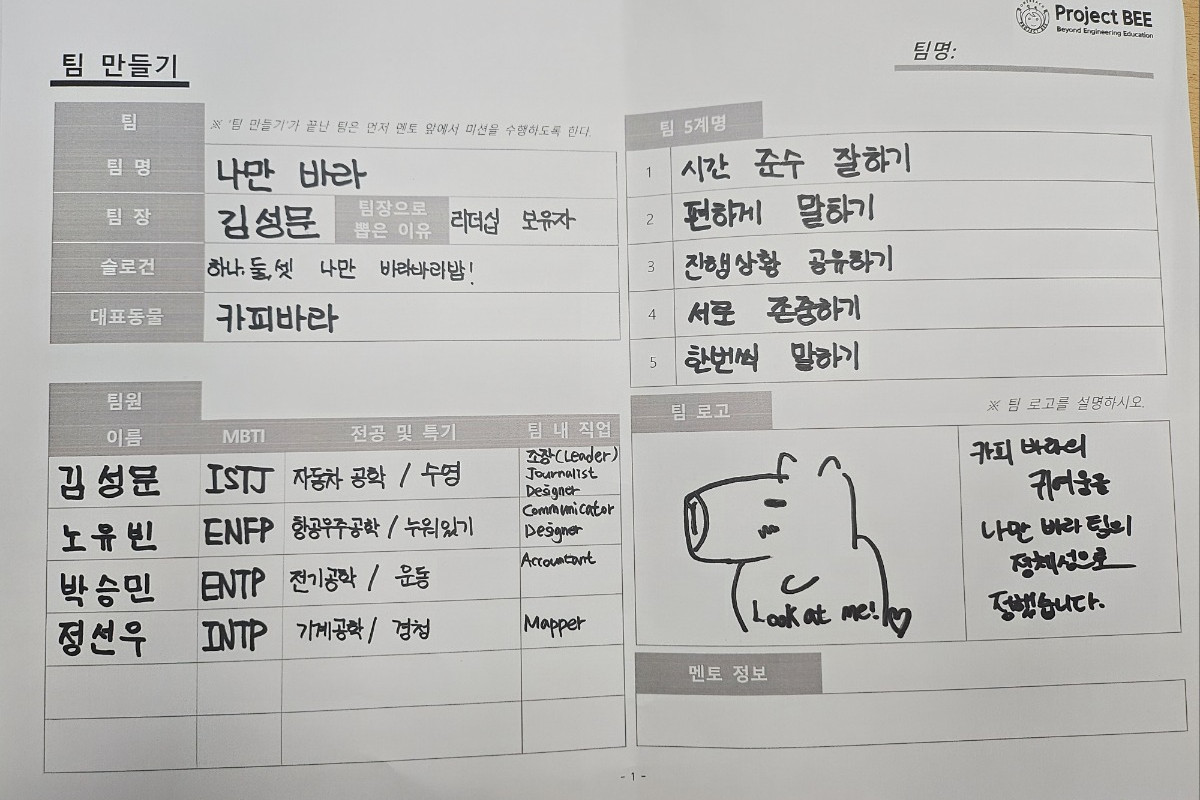 Project BEE
Beyond Engineering Education
팀 만들기
팀명:
팀
※ '팀 만들기'가 끝난 팀은 먼저 멘토 앞에서 미션을 수행하도록 한다.
팀 명 나만 바라
팀 장 김성문 팀장으로 뽑은 이유 리더십 보유자
슬로건 하나, 둘, 셋 나만 바라바라밤!
대표동물 카피바라
팀 5계명
1 시간 준수 잘하기
2 편하게 말하기
3 진행상황 공유하기
4 서로 존중하기
5 한번씩 말하기
팀원
이름 MBTI 전공 및 특기 팀 내 직업
김성문 ISTJ 자동차 공학 / 수영 조장(Leader) Journalist Designer
노유빈 ENFP 항공우주공학 / 누워있기 Communicator Designer
박승민 ENTP 전기공학 / 운동 Accountant
정선우 INTP 기계공학 / 경청 Mapper
팀 로고
※ 팀 로고를 설명하시오.
Look at me!
카피 바라의
귀여움을
나만 바라 팀의
정체성으로
정했습니다.
멘토 정보
- 1 -